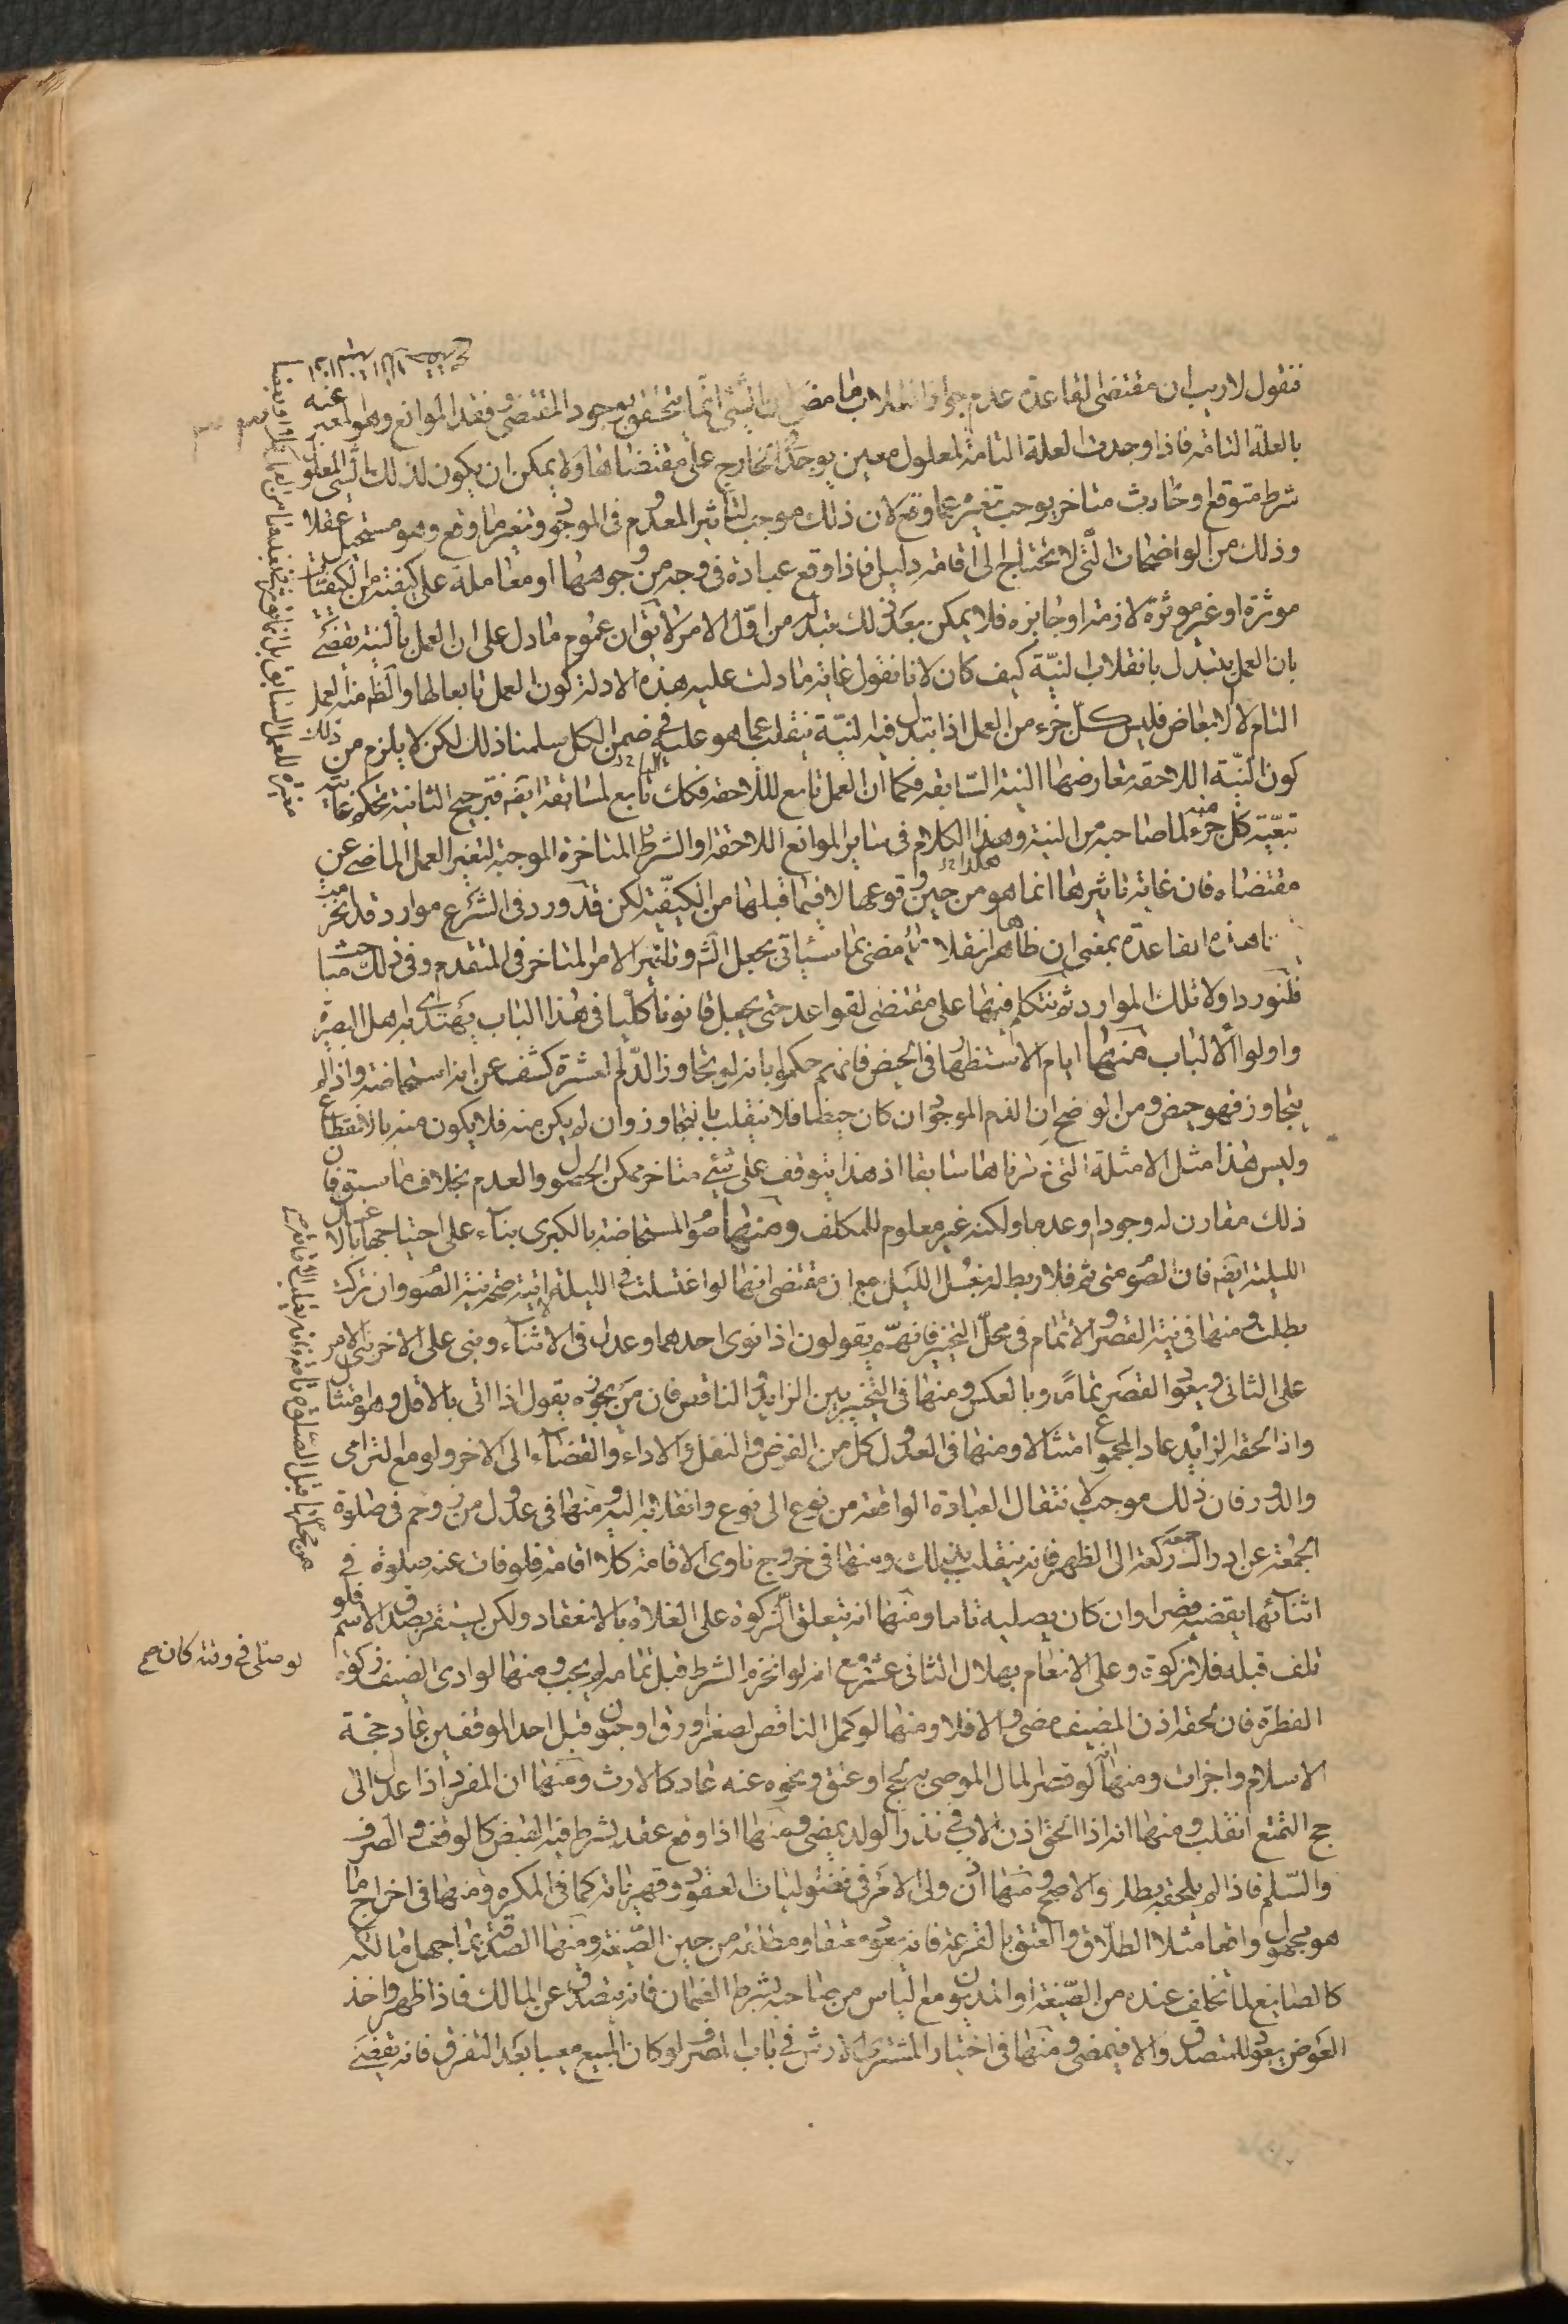 فنقول لا ريب ان مقتضى القاعدة عدم جواز انقلاب ما مضى لان الشئ انما يتحقق بوجود المقتضى وفقد الموانع وهو المعبر عنه
بالعلة التامة فاذا وجدت العلة التامة لمعلول معين يوجد فى الخارج على مقتضاها ولا يمكن ان يكون لذلك الشئ المعلول
شرط متوقع او حادث متاخر يوجب تغيره عما وقع لان ذلك موجب لتاثير المعدوم فى الموجود وتغير ما وقع وهو مستحيل عقلا
وذلك من الواضحات التى لا تحتاج الى اقامة دليل فاذا وقع عبادة فى وجه من وجوهها او معاملة على كيفية من الكيفيات
موثرة او غير موثرة لازمة او جايزه فلا يمكن بعد ذلك تبدله من اول الامر لا يق ان عموم ما دل على ان العمل بالنية يقضى
بان العمل يتبدل بانقلاب النية كيف كان لانا نقول غاية ما دلت عليه هذه الادلة كون العمل تابعا لها والظ منه العمل
التام لا الابعاض فليس كل جزء من العمل اذا تبدل فيه النية ينقلب عما هو عليه فى ضمن الكل سلمنا ذلك لكن لا يلزم من ذلك
كون النية اللاحقة تعارضها النية السابقة فكما ان العمل تابع لللاحقة فكك تابع لسابقة ايض فترجيح الثانية تحكم
تبعية كل جزء منه لما صاحبه من النية وهكذا الكلام فى ساير الموانع اللاحقة او الشرط المتاخرة الموجبة لتغير العمل الماضى عن
مقتضاه فان غاية تاثيرها انما هو من حين وقوعها لا فيما قبلها من الكيفية لكن قد ورد فى الشرع موارد قد انخر
هذه القاعدة بمعنى ان ظاهرها انقلاب ما مضى بما سياتى بجعل الشم وتاثير الامر المتاخر فى المتقدم وفى ذلك
فلنورد اولا تلك الموارد ثم نتكلم فيها على مقتضى القواعد حتى يجعل قانونا كليا فى هذا الباب يهتدى به اهل البصيرة
واولوا الالباب منها ايام الاستظهار فى الحيض فانهم حكموا بانه لو تجاوز الدم العشرة كشف عن انه استحاضة واذا لم
يتجاوز فهو حيض ومن الواضح ان الدم الموجود ان كان حيضا فلا ينقلب بالتجاوز وان لم يكن منه فلا يكون منه بالانقطاع
وليس هذا مثل الامثلة التى ذكرناها سابقا اذ هذا يتوقف على شئ متاخر ممكن الحصول والعدم بخلاف ما سبق فان
ذلك مقارن له وجودا وعدما ولكنه غير معلوم للمكلف ومنها صوم المستحاضة بالكبرى بناء على احتياجها بالاغسال
الليلية ايض فان الصوم متى تم فلا ربط له بغسل الليل مع ان مقتضى انها لو اغتسلت فى الليلة الاتية صح منه الصوم وان تركت
بطلت ومنها فى نية القصر والاتمام فى محل التخيير فانهم يقولون اذا نوى احدهما وعدل فى الاثناء وبنى على الاخر بنى الامر
على الثانى ويعود القصر تماما وبالعكس ومنها فى التخيير بين الزايد والناقص فان من يجوزه يقول اذا اتى بالاقل وهو امتثال
واذا لحقه الزايد عاد المجموع امتثالا ومنها فى العدول كل من الفرض والنفل والاداء والقضاء الى الاخر ولو مع الترامى
والدور فان ذلك موجب لانتقال العبادة الواقعة من نوع الى نوع وانقلابه اليه ومنها فى عدول من زوحم فى صلوة
الجمعة عن ادراك ركعة الى الظهر فانه ينقلب بذلك ومنها فى خروج ناوى الاقامة كلا اقامة فلو فات عنه صلوة فى
اثنائها يقضيه قصرا وان كان يصليه تاما ومنها انه يتعلق الزكوة على الغلاة بالانعقاد ولكن يستقر بصدق الاسم فلو
تلف قبله فلا زكوة وعلى الانعام بهلال الثانى عشر مع انه لو انخرم الشرط قبل تمامه لم يجب ومنها لو ادى الضيف زكوة
الفطرة فان لحقه اذن المضيف مضى والا فلا ومنها لو كمل الناقص لصغر ورق او جنون قبل احد الموقفين عاد حجة
الاسلام واجزات ومنها انه لو قصر المال الموصى به لحج او عتق ونحوه عنه عاد كالارث ومنها ان المفرد اذا عدل الى
حج التمتع انقلب ومنها انه اذا الحق اذن الاب فى نذر الولد يمضى ومنها اذا وقع عقد يشرط فيه القبض كالوقف والصرف
والسلم فاذا لم يلحقه بطلر والا صح ومنها اذن ولى الامر فى فضوليات العقود وقهرياته كما فى المكره ومنها فى اخراج ما
هو مجهول واقعا مثلا الطلاق والعتق بالقرعة فانه يعود معتقا ومطلقه من حين الصيغة ومنها الصدقة بما جهل مالكه
كالصايغ لما تخلف عنده من الصيغة او المديون مع الياس من صاحبه بشرط الضمان فانه يتصدق عن المالك فاذا ظهر واخذ
العوض يعود للمتصدق والا فيمضى ومنها فى اختيار المشترى الارش فى باب الصرف لو كان المبيع معيبا بعد التفرق فانه يقضى
لو صلى فى وقته كان صح